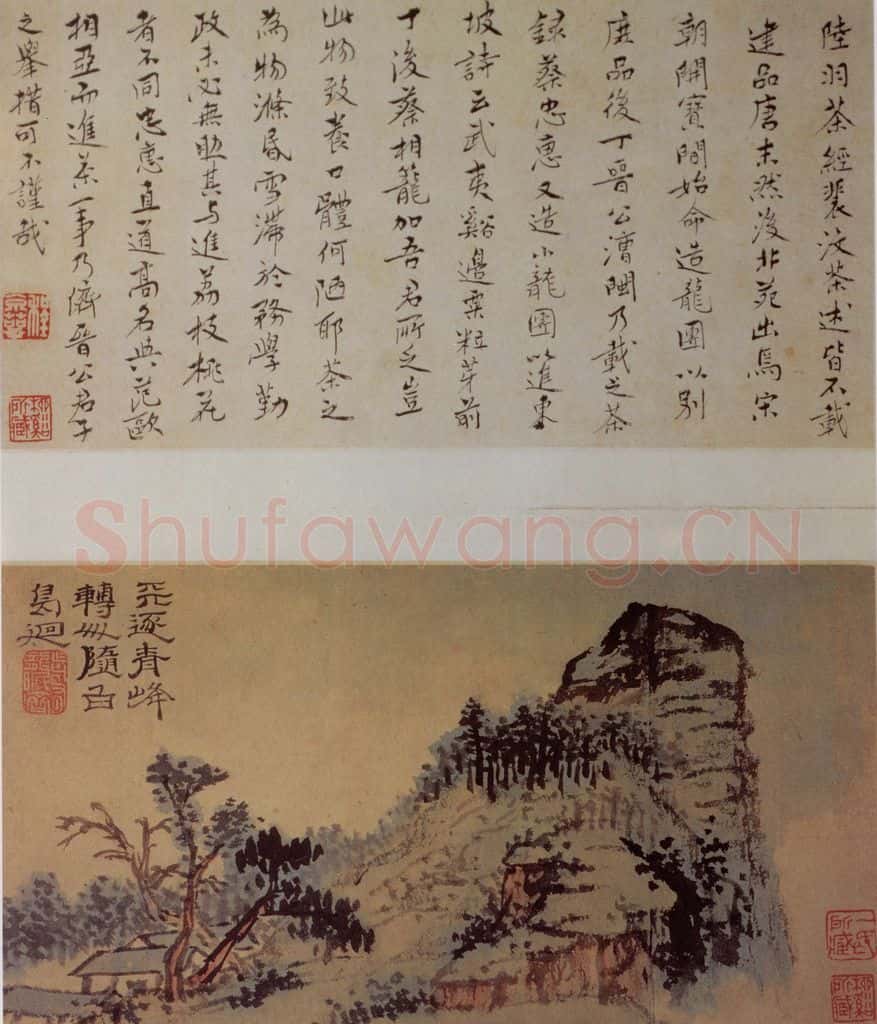 陸羽茶經裴汶茶述皆不載
建品唐末然後北苑出焉宋
朝開寶間始命造龍團以別
庶品後丁晉公漕閩乃載之茶
錄蔡忠惠又造小龍團以進東
坡詩云武夷谿邊粟粒芽前
丁後蔡相籠加吾君所乏豈
此物致養口體何陋耶茶之
為物滌昏雪滯於務學勤
政未必無助其与進荔枝桃花
者不同忠惠直道高名與范歐
相亞而進茶一事乃儕晉公君子
之舉措可不謹哉
Shufawang.CN
逐青峰
轉舟隨白
鳥迴